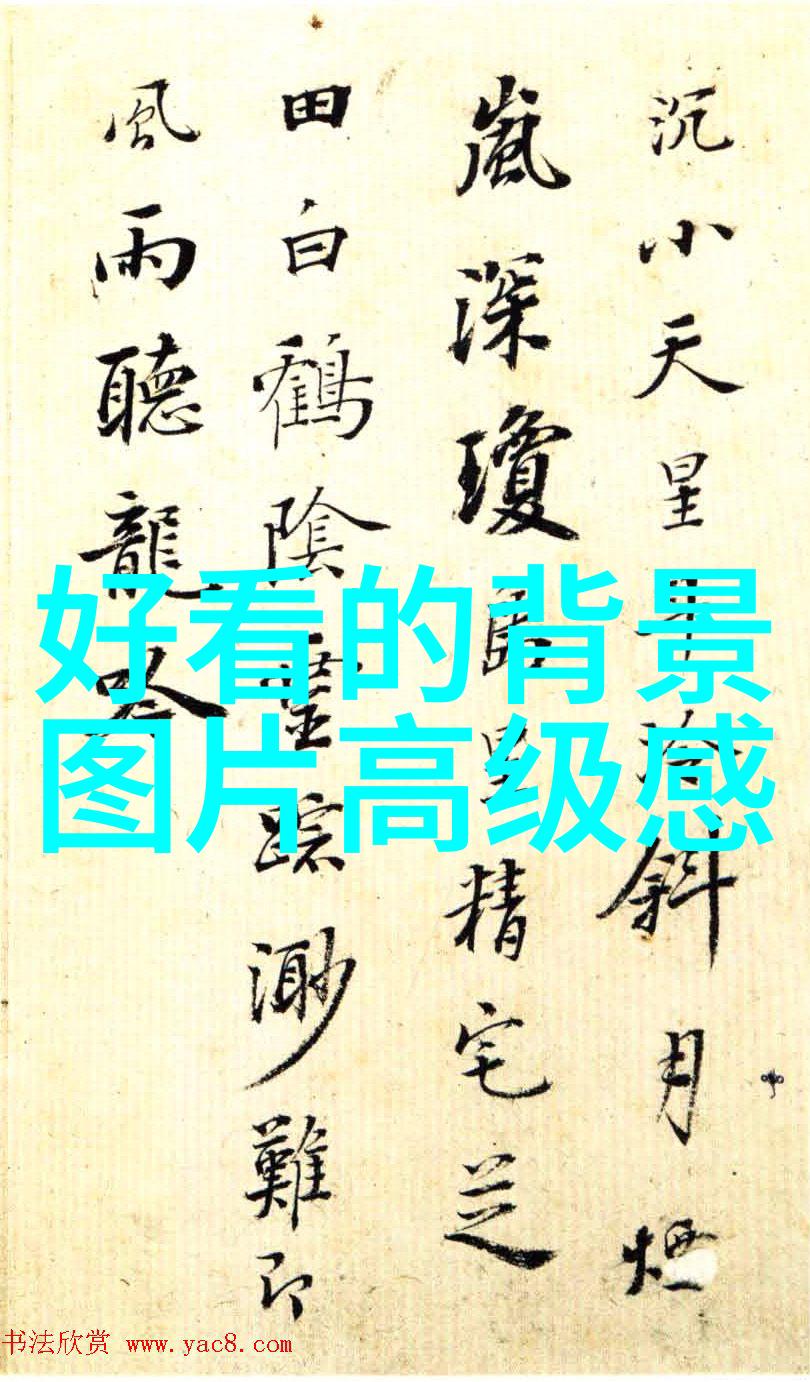 沉小天星斗冷斜月煙
嵐深瓊島黑精宅芝
田白鶴陰叢蹤渺難即
風雨聽龍吟
好看的背景
图片高级感
书法欣赏 www.yac8.com